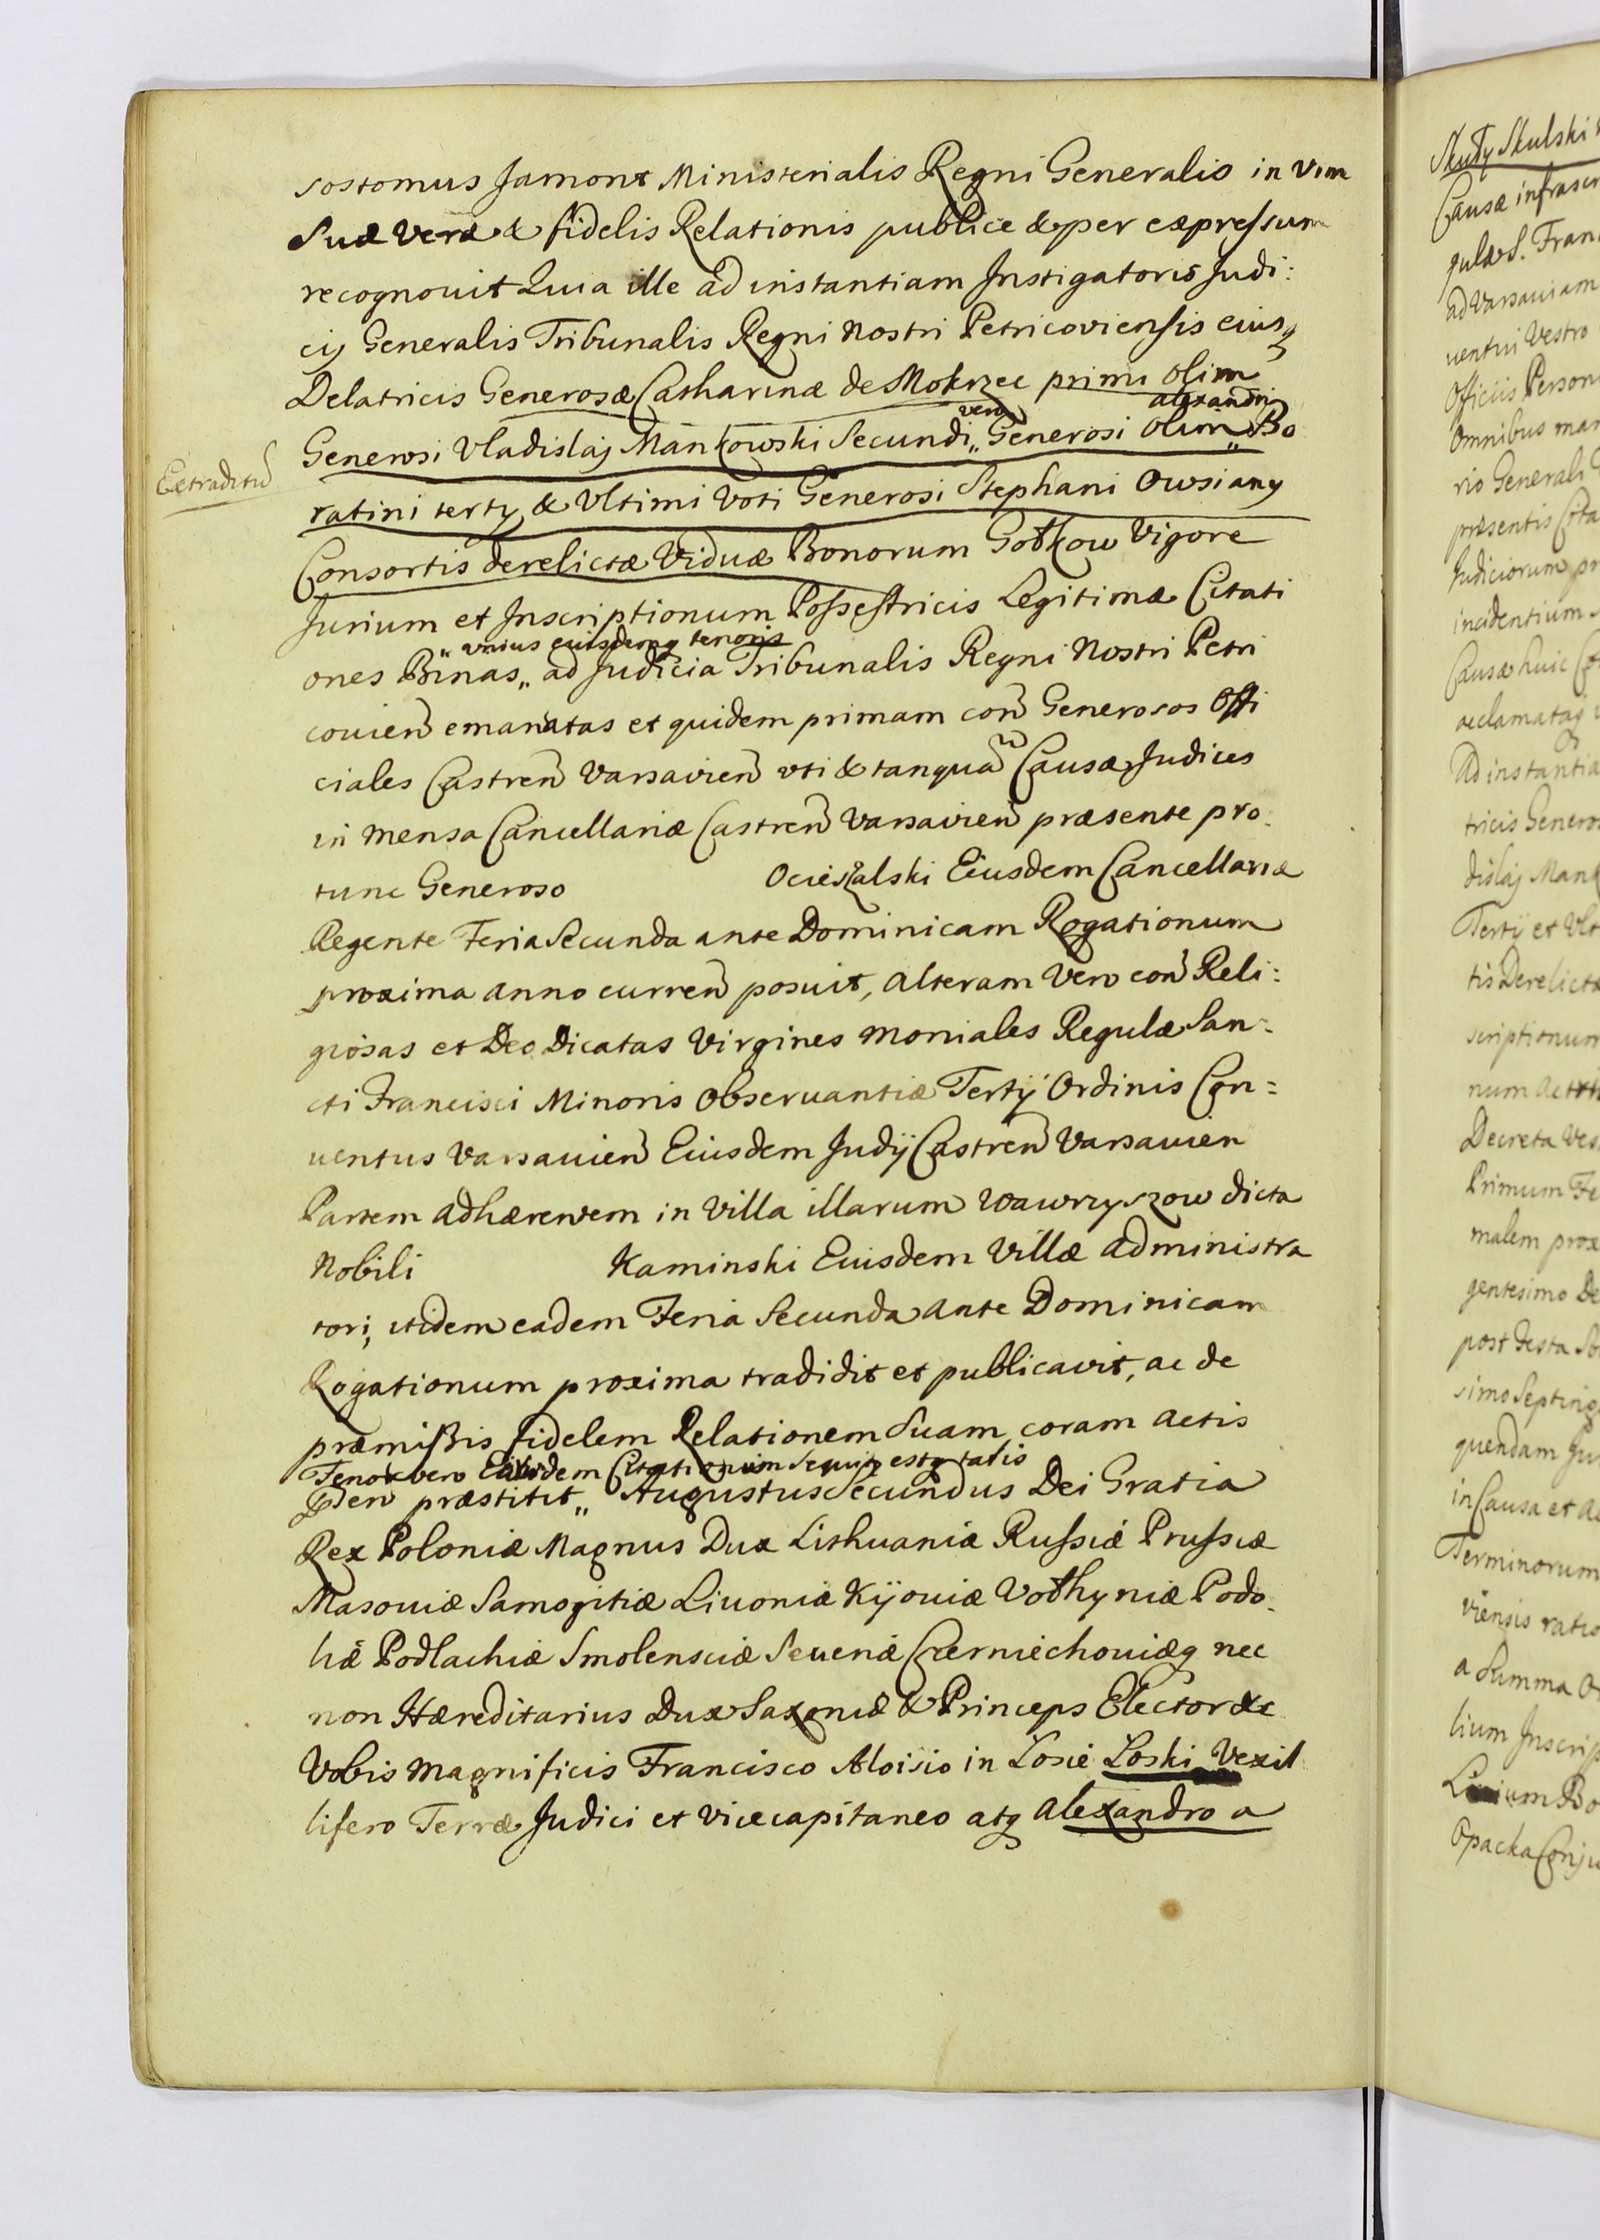 sostomus Jamont Ministerialis Regni Generalis in vim
Suæ veræ & fidelis Relationis publice & per expressum
recognovit Quia ille ad instantiam Instigatoris Judi:
cij Generalis Tribunalis Regni Nostri Petricoviensis eiusq
Delatricis Generosæ Catharinæ de Mokrzec primi olim
vero Alexandri
Generosi Vladislaj Mankowski Secundi„ Generosi olim „ Bo
Extraditũ
ratini tertij & Vltimi Voti Generosi Stephani Owsiany
Consortis derelictæ Viduæ Bonorum Gotkow Vigore
Jurium et Inscriptionum Possestricis Legitimæ Citati
„ unius eiusdemq tenoris
ones Binas„ ad Judicia Tribunalis Regni Nostri Petri
couien emanatas et quidem primam con Generosos Offi
ciales Castren Varsavien vti & tanquã Causæ Judices
in Mensa Cancellariæ Castren Varsavien præsente pro
tunc Generoso Ocieszalski Eiusdem Cancellariæ
Regente Feria Secunda ante Dominicam Rogationum
proxima anno curren posuit, alteram Vero con Reli:
giosas et Deo Dicatas Virgines Moniales Regulæ San:
cti Francisci Minoris Observantiæ Tertij Ordinis Con:
uentus Varsauien Eiusdem Judij Castren Varsauien
Partem adhærentem in Villa illarum Wawrzyszow dicta
Nobili Kaminski Eiusdem Villæ administra
tori, itidem eadem Feria Secunda ante Dominicam
Rogationum proxima tradidit et publicavit, ac de
præmissis fidelem Relationem Suam coram actis
Tenor vero Citationum sequir estq talis
præstitit„ Augustus Secundus Dei Gratia
Rex Poloniæ Magnus Dux Lithuaniæ Russiæ Prussiæ
Masouiæ Samogitiæ Liuoniæ Kijouiæ Vothyniæ Podo
liæ Podlachiæ Smolensciæ Seueriæ Czerniechouiæq nec
non Hæreditarius Dux Saxoniæ & Princeps Elector &c
Vobis Magnificis Francisco Aloisio in Losie Loski Vexil
lifero Terræ Judici et Vicecapitaneo atq Alexandro a
Skulski
Causæ infrascr
gulæ S. Fran
ad Varsauiam
uentui Vestro
Officiis Person
Omnibus man
rio Generali
præsentis Cita
Judiciorum pr
incidentium
Causæ huic
acclamataq
Ad instantia
tricis Genero
dislaj Mank
Tertij et Vlt
tis Derelictæ
scriptionum
num
Decreta Ves
Primum Fe
malem prox
gentesimo De
post Festa
simo Septing
quendam
in Causa et
Terminorum
viensis ratio
a Summa
lium Inscrip
Opacka Conju